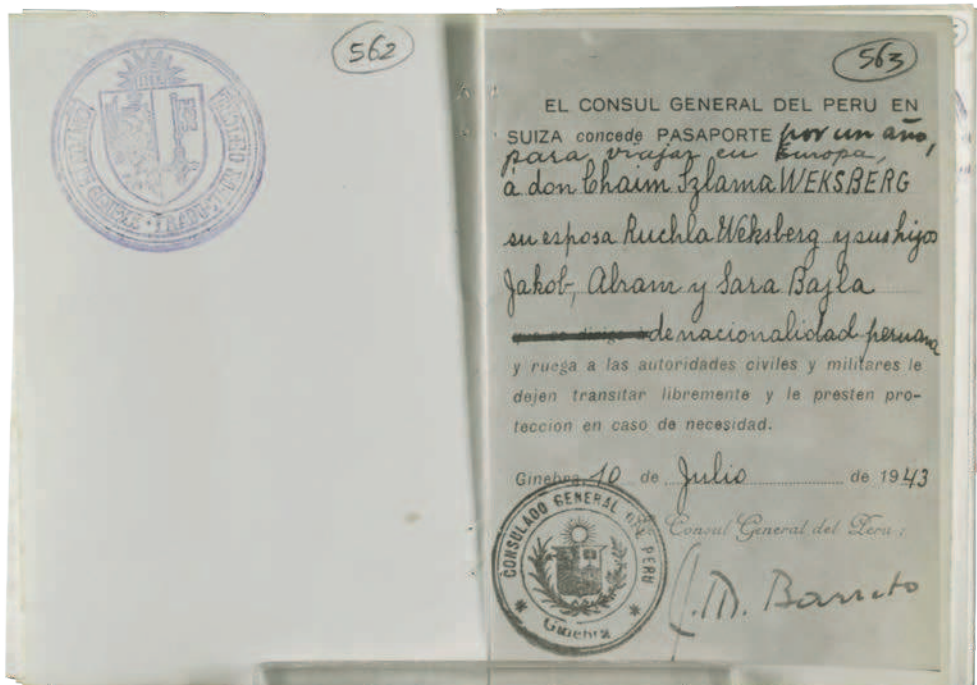 562
563
EL CONSUL GENERAL DEL PERU EN
SUIZA concede PASAPORTE por un año,
para viajar en Europa,
á don Chaim Szlama WEKSBERG
su esposa Ruchla Weksberg y sus hijos
Jakob, Abram y Sara Bajla
de nacionalidad peruana
y ruega a las autoridades civiles y militares le
dejen transitar libremente y le presten pro-
teccion en caso de necesidad.
Ginebra, 10 de Julio de 1943
Consul General del Peru:
CONSULADO GENERAL DEL PERU
Ginebra
J. M. Barreto